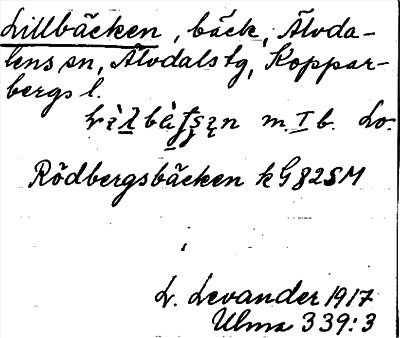 Lillbäcken, bäck, Älvda-
lens sn, Älvdals tg, Koppar-
bergs l.
m. I b. Lo.
Rödbergsbäcken k G 82 SM
L. Levander 1917
Ulma 339:3